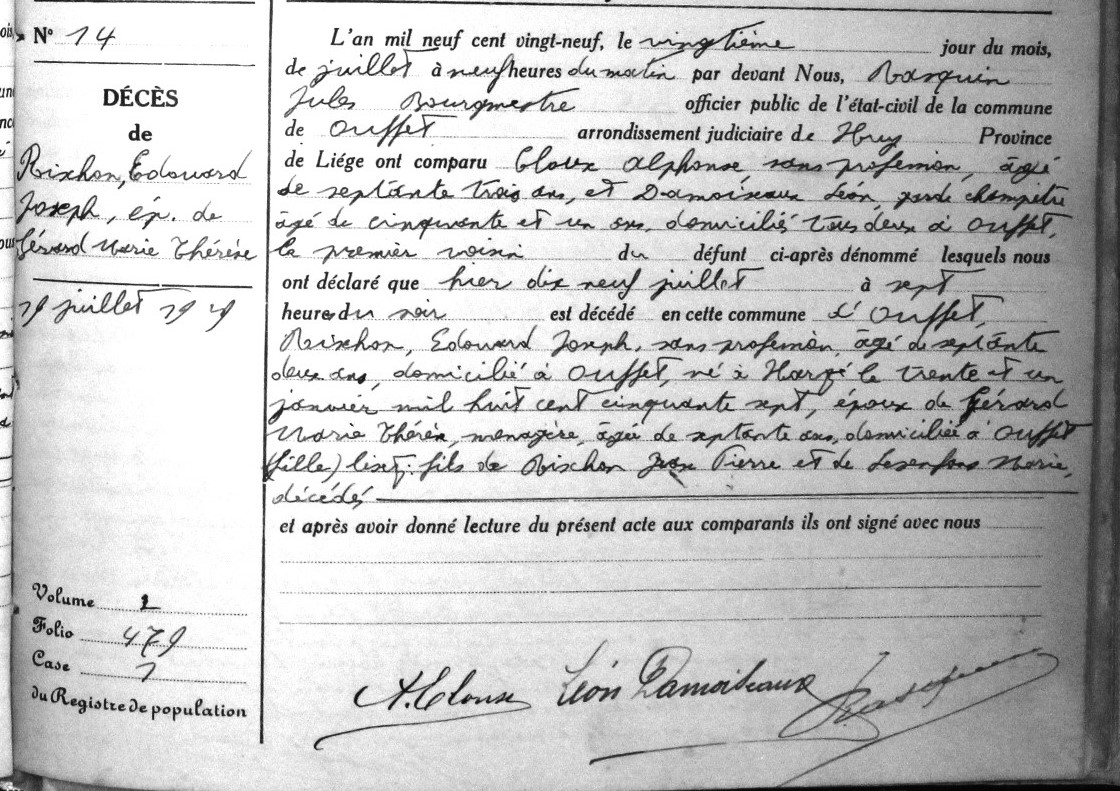 N° 14
DÉCÈS
de
Rixhon, Edouard
Joseph, ép. de
Gérard Marie Thérèse
19 juillet 1929
Volume 1
Folio 479
Case 1
du Registre de population
L'an mil neuf cent vingt-neuf, le vingtième jour du mois,
de juillet à neuf heures du matin par devant Nous, Rasquin
Jules Bourgmestre officier public de l'état-civil de la commune
de Ouffet arrondissement judiciaire de Huy Province
de Liége ont comparu Cloux Alphonse, sans profession, âgé
de septante trois ans, et Damoiseaux Léon, garde champêtre
âgé de cinquante et un ans, domiciliés tous deux à Ouffet,
le premier voisin du défunt ci-après dénommé lesquels nous
ont déclaré que hier dix neuf juillet à sept
heures du soir est décédé en cette commune d'Ouffet,
Rixhon, Edouard Joseph, sans profession, âgé de septante
deux ans, domicilié à Ouffet, né à Harzé le trente et un
janvier mil huit cent cinquante sept, époux de Gérard
Marie Thérèse, ménagère, âgée de septante ans, domiciliée à Ouffet
(fille) fils de Rixhon Jean Pierre et de Lesenfans Marie,
décédés
et après avoir donné lecture du présent acte aux comparants ils ont signé avec nous
A. Cloux Léon Damoiseaux Rasquin